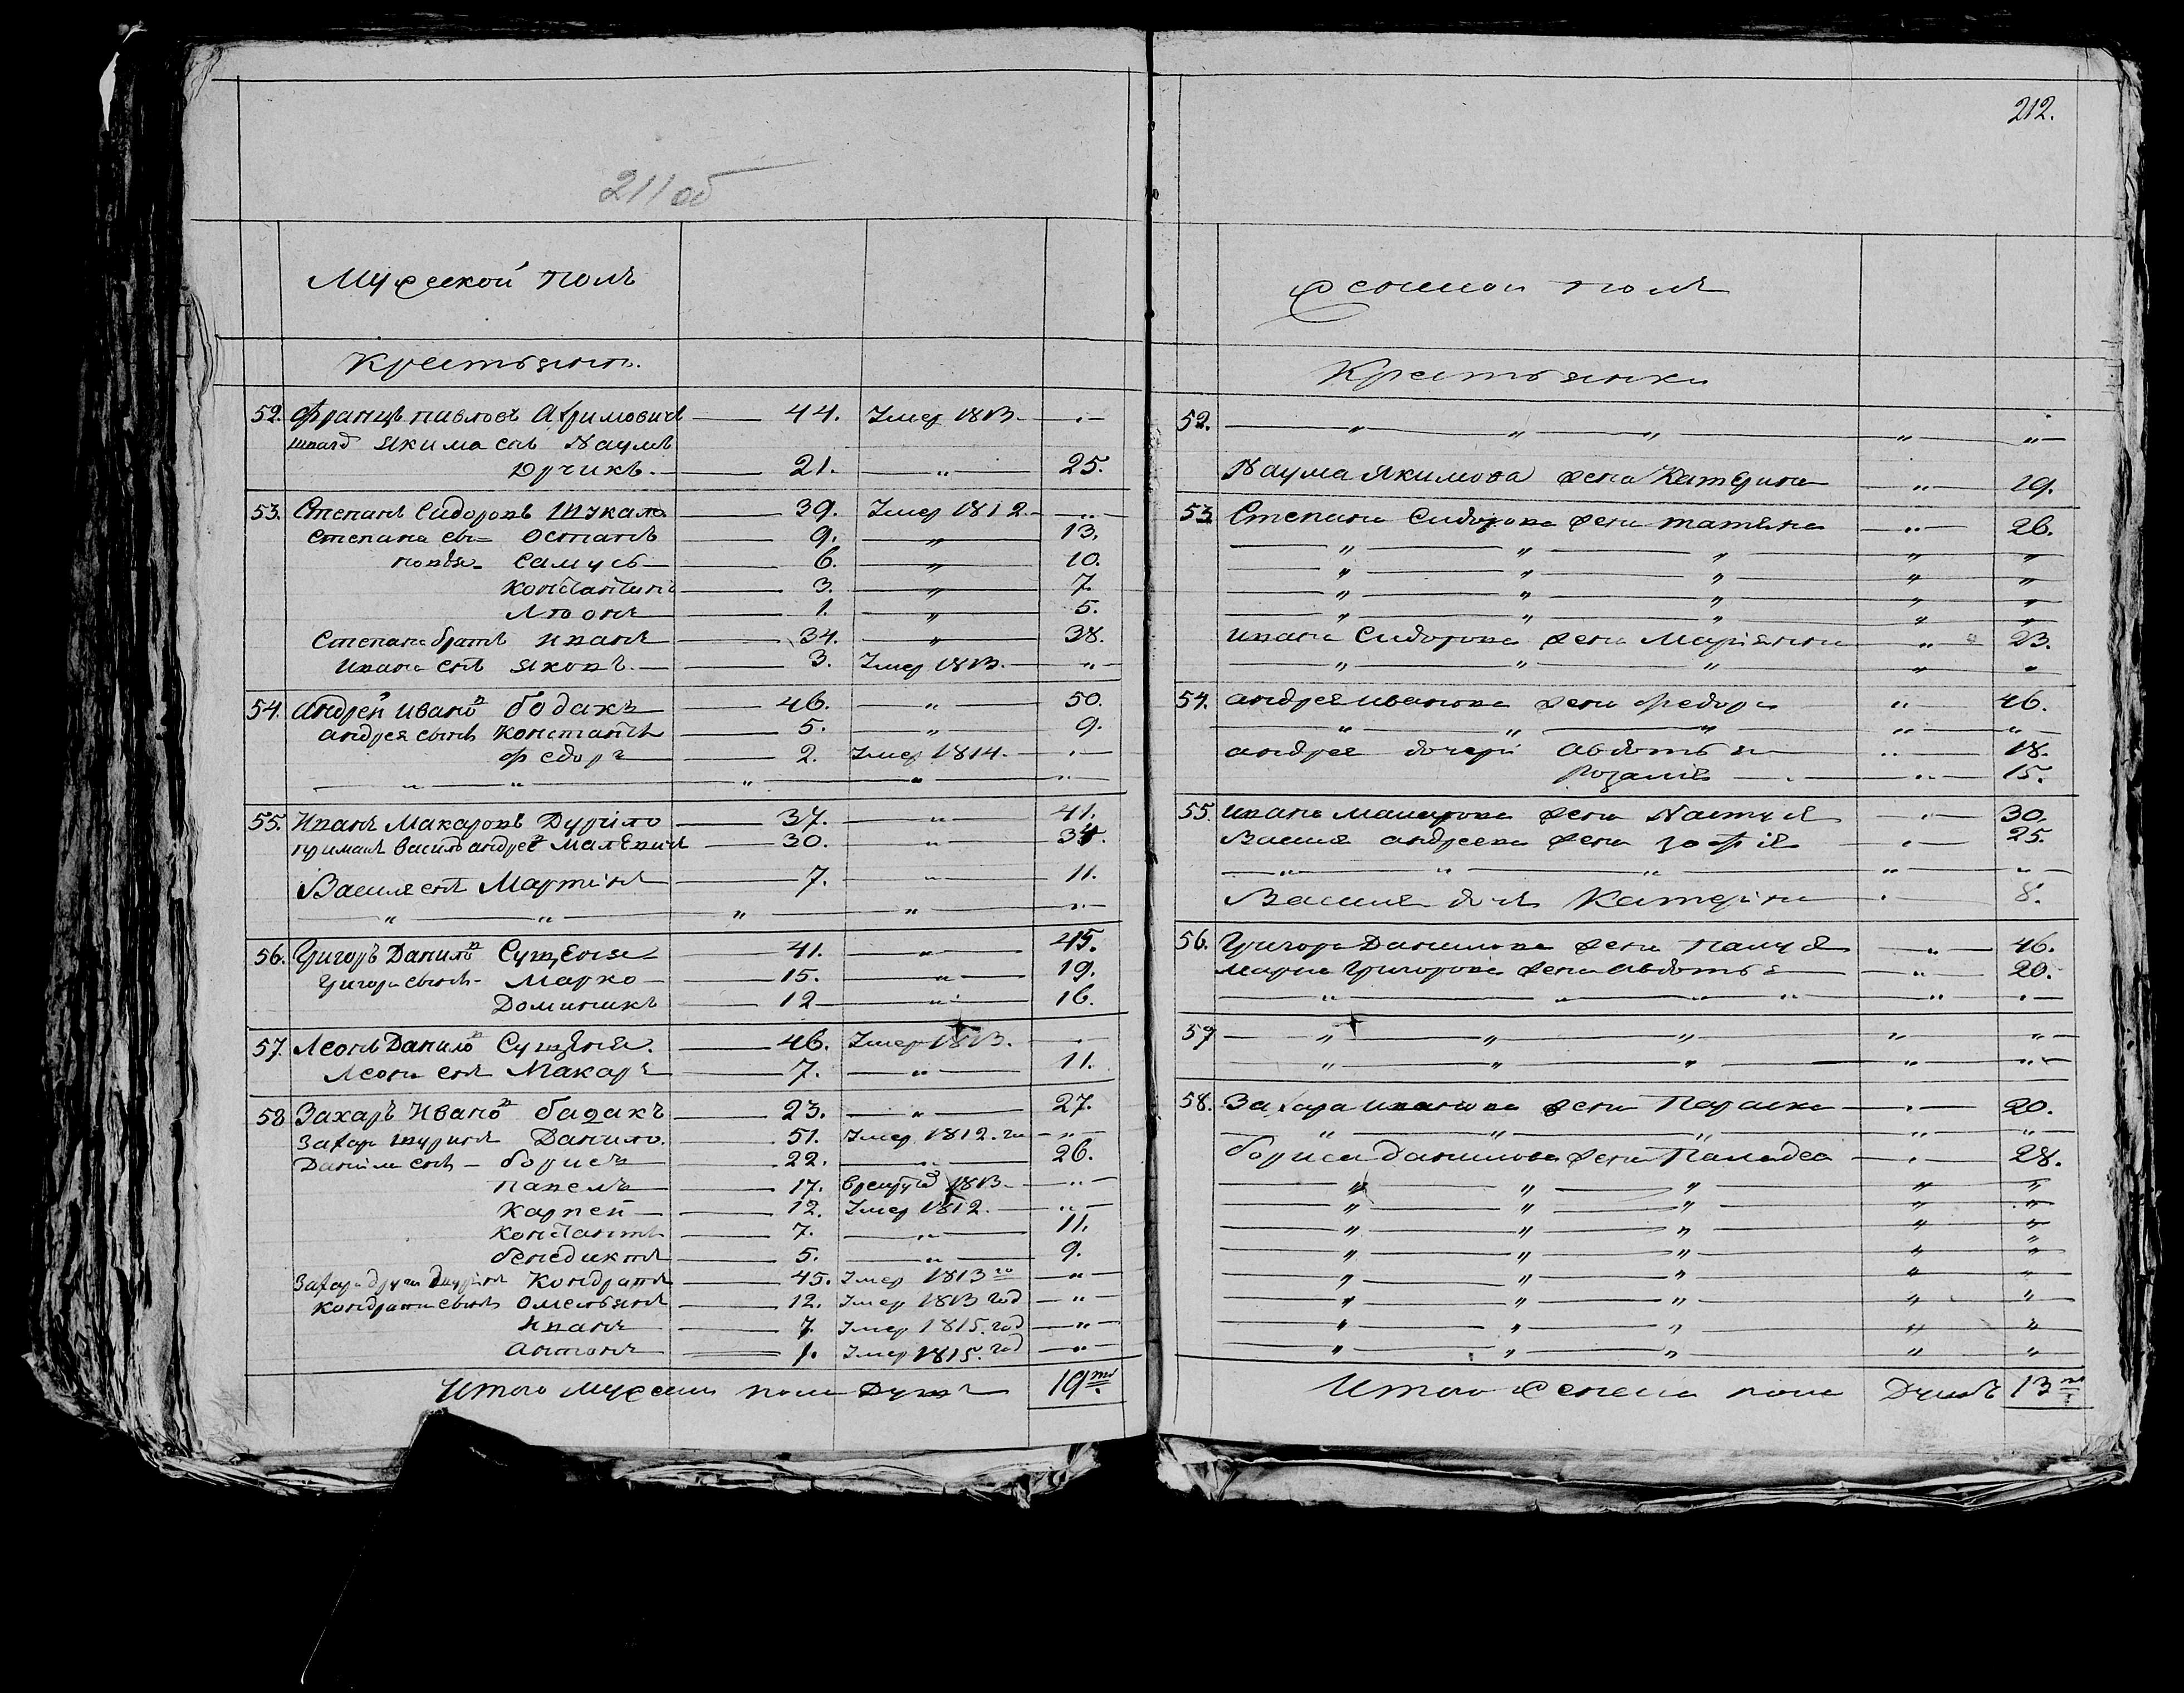 211 об
Мужеской полъ
Крестьянъ.
52. Францъ павловъ Ахримовичъ — 44. Умер 1813. — „ —
якима сынъ Наумъ
Юрчикъ. — 21. — „ — 25.
53. Степанъ Сидоровъ Шукало — 39. Умер 1812. — „ —
Степана сы= Остапъ — 9. — „ — 13.
Самусь — 6. — „ — 10.
Константинъ — 3. — „ — 7.
Леонъ — 1. — „ — 5.
Степана братъ иванъ — 34. — „ — 38.
ивана снъ яковъ. — 3. Умер 1813. — „ —
54. андрей ивановъ бодакъ — 46. — „ — 50.
андрея сынъ константъ — 5. — „ — 9.
федоръ — 2. Умер 1814. — „ —
— „ — „ — „ — „ — „ —
55. Иванъ Макаровъ Дурило — 37. — „ — 41.
примакъ василь андреевъ Малевичъ — 30. — „ — 34.
Василя снъ Мартинъ — 7. — „ — 11.
— „ — „ — „ — „ — „ —
56. Григоръ Данилов Сущеня — 41. — „ — 45.
Григора сынъ — Марко — 15. — „ — 19.
Доминикъ — 12 — „ — 16.
57. Леонъ Данилов Сущеня. — 46. Умер 1813. — „ —
Леона снъ Макаръ — 7. — „ — 11.
58 Захаръ Иванов бадакъ — 23. — „ — 27.
Захара шуринъ Данило. — 51. Умер 1812. го — „ —
Данила снъ — борисъ — 22. — „ — 26.
павелъ — 17. 1813 — „ —
Карпей — 12. Умер 1812. — „ —
константъ — 7. — „ — 11.
бенедиктъ — 5. — „ — 9.
Захара другий шуринъ Кондратъ — 45. Умер 1813 го — „ —
кондрата сынъ омельянъ — 12. Умер 1813 год — „ —
иванъ — 7. Умер 1815. год — „ —
антонъ — 1. Умер 1815. год — „ —
Итого мужеска пола душъ 19ть
212.
женской полъ
Крестьянки
52. — „ — „ — „ — „ — „ —
Наума Якимова жена Катерина — „ — 19.
53. Степана Сидорова жена татяна — „ — 26.
— „ — „ — „ — „ — „
— „ — „ — „ — „ — „
— „ — „ — „ — „ — „
— „ — „ — „ — „ — „
ивана Сидорова жена Маріяна — „ — 23.
— „ — „ — „ — „ — „
54. андрея иванова жена федора — „ — 46.
— „ — „ — „ — „ —
андрея дочери авдотья — „ — 18.
Розалия — „ — 15.
55. ивана макарова жена Настуся — „ — 30.
Василя андреева жена зофія — „ — 25.
— „ — „ — „ — „ — „ —
Василя дочь Катеріна — „ — 8.
56. Григора Данилова жена палуся — „ — 46.
марка Григорова жена авдотья — „ — 20.
— „ — „ — „ — „ — „ —
57 — „ — „ — „ — „ — „ —
— „ — „ — „ — „ — „ —
58. Захара иванова жена Параска — „ — 20.
— „ — „ — „ — „ — „
бориса данилова жена Паладея — „ — 28.
— „ — „ — „ — „ — „
— „ — „ — „ — „ — „
— „ — „ — „ — „ — „
— „ — „ — „ — „ — „
— „ — „ — „ — „ — „
— „ — „ — „ — „ — „
— „ — „ — „ — „ — „
— „ — „ — „ — „ — „
Итого женска пола Душъ 13ть